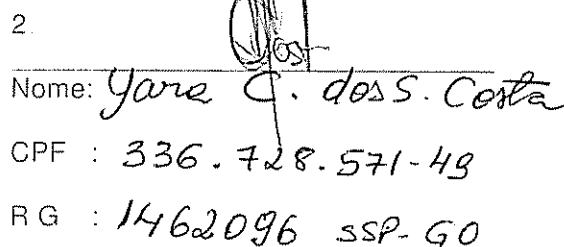 2.
Nome: Yara C. dos S. Costa
CPF : 336.728.571-49
RG : 1462096 SSP-GO